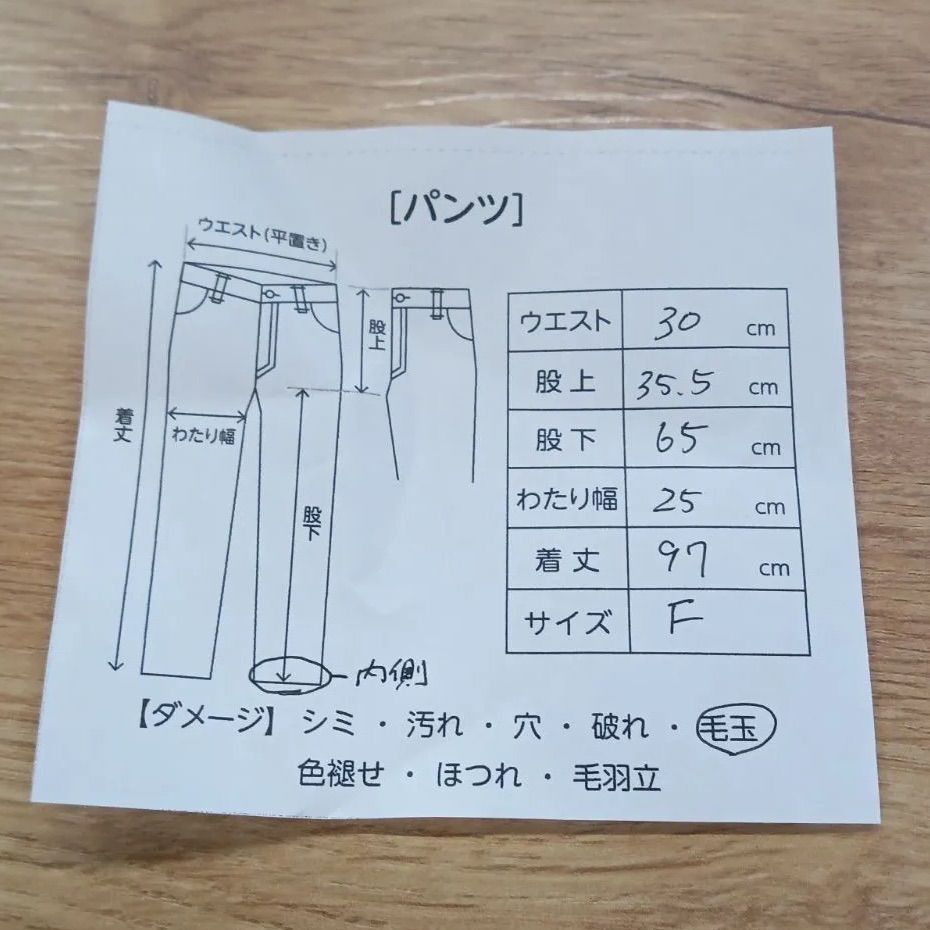 [パンツ]
ウエスト(平置き)
股上
着丈
わたり幅
股下
内側
ウエスト 30 cm
股上 35.5 cm
股下 65 cm
わたり幅 25 cm
着丈 97 cm
サイズ F
【ダメージ】 シミ ・ 汚れ ・ 穴 ・ 破れ ・ 毛玉
色褪せ ・ ほつれ ・ 毛羽立